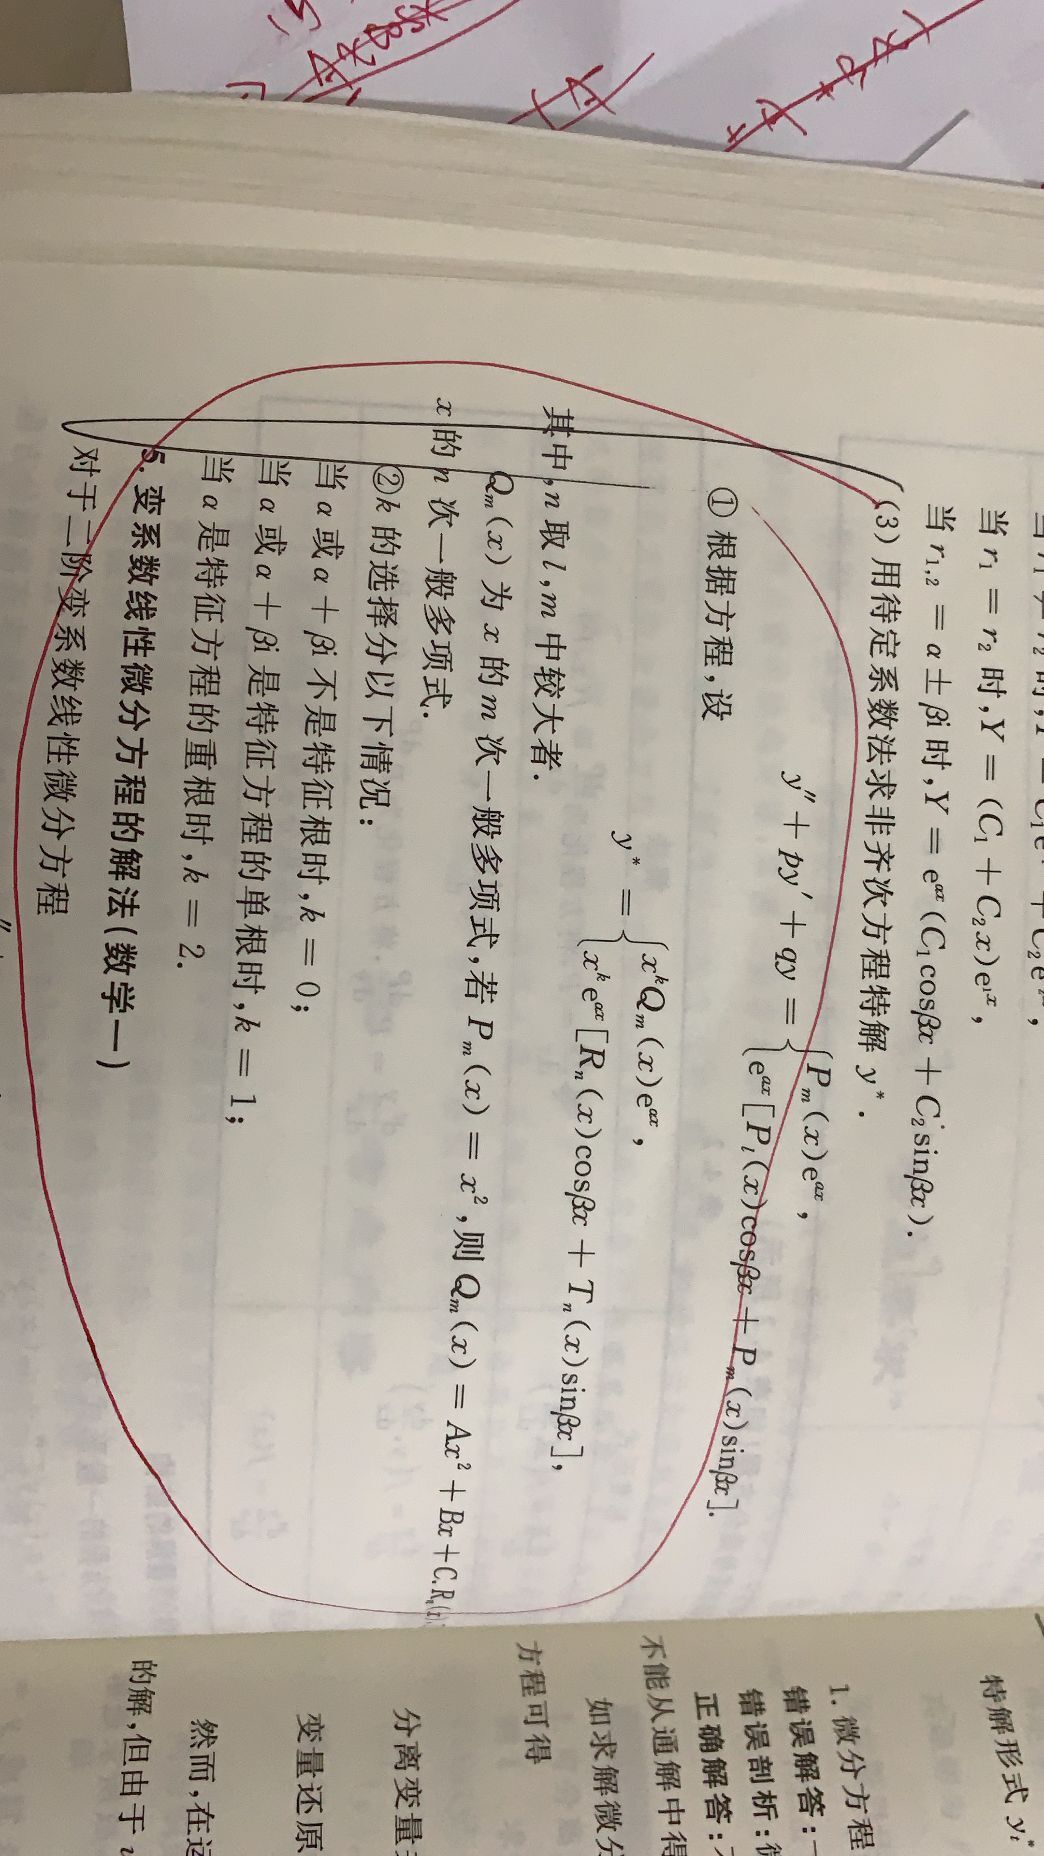 当 r₁ = r₂ 时,Y = (C₁ + C₂x)e^{r₁x},
当 r₁,₂ = α ± βi 时,Y = e^{αx}(C₁cosβx + C₂sinβx).
(3) 用待定系数法求非齐次方程特解 y*.
y″ + py′ + qy = { P_m(x)e^{αx},
e^{αx}[P_l(x)cosβx + P_m(x)sinβx].
① 根据方程,设
y* = { x^kQ_m(x)e^{αx},
x^ke^{αx}[R_n(x)cosβx + T_n(x)sinβx],
其中,n 取 l,m 中较大者.
Q_m(x) 为 x 的 m 次一般多项式,若 P_m(x) = x²,则 Q_m(x) = Ax² + Bx + C.
x 的 n 次一般多项式.
②k 的选择分以下情况:
当 α 或 α + βi 不是特征根时,k = 0;
当 α 或 α + βi 是特征方程的单根时,k = 1;
当 α 是特征方程的重根时,k = 2.
5. 变系数线性微分方程的解法(数学一)
对于二阶变系数线性微分方程
特解形式 y₁*
1. 微分方程
错误解答:
错误剖析:微
正确解答:
不能从通解中得
如求解微分
方程可得
分离变量
变量还原
然而,在运
的解,但由于